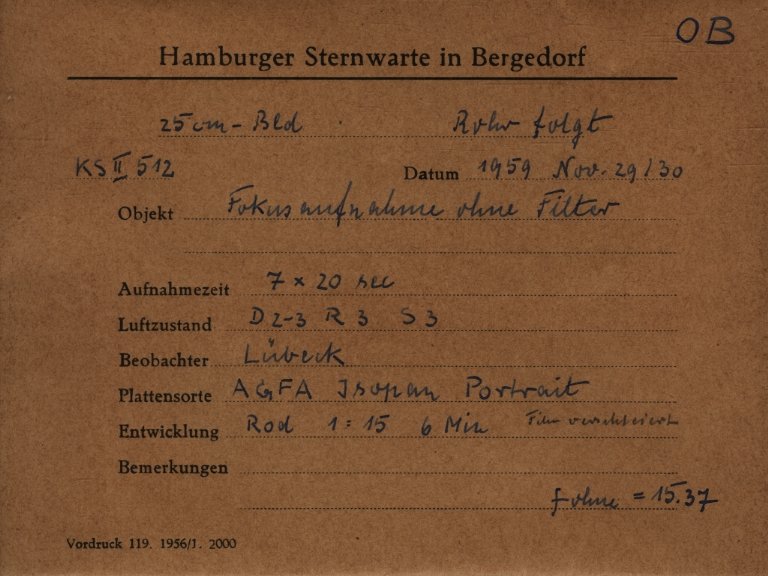 OB
Hamburger Sternwarte in Bergedorf
25cm-Bld Rohr folgt
KS II 512 Datum 1959 Nov. 29/30
Objekt Fokusaufnahme ohne Filter
Aufnahmezeit 7 x 20 sec
Luftzustand D 2-3 R 3 S 3
Beobachter Lübeck
Plattensorte AGFA Isopan Portrait
Entwicklung Rod 1:15 6 Min Film
Bemerkungen
f ohne = 15.37
Vordruck 119. 1956/1. 2000